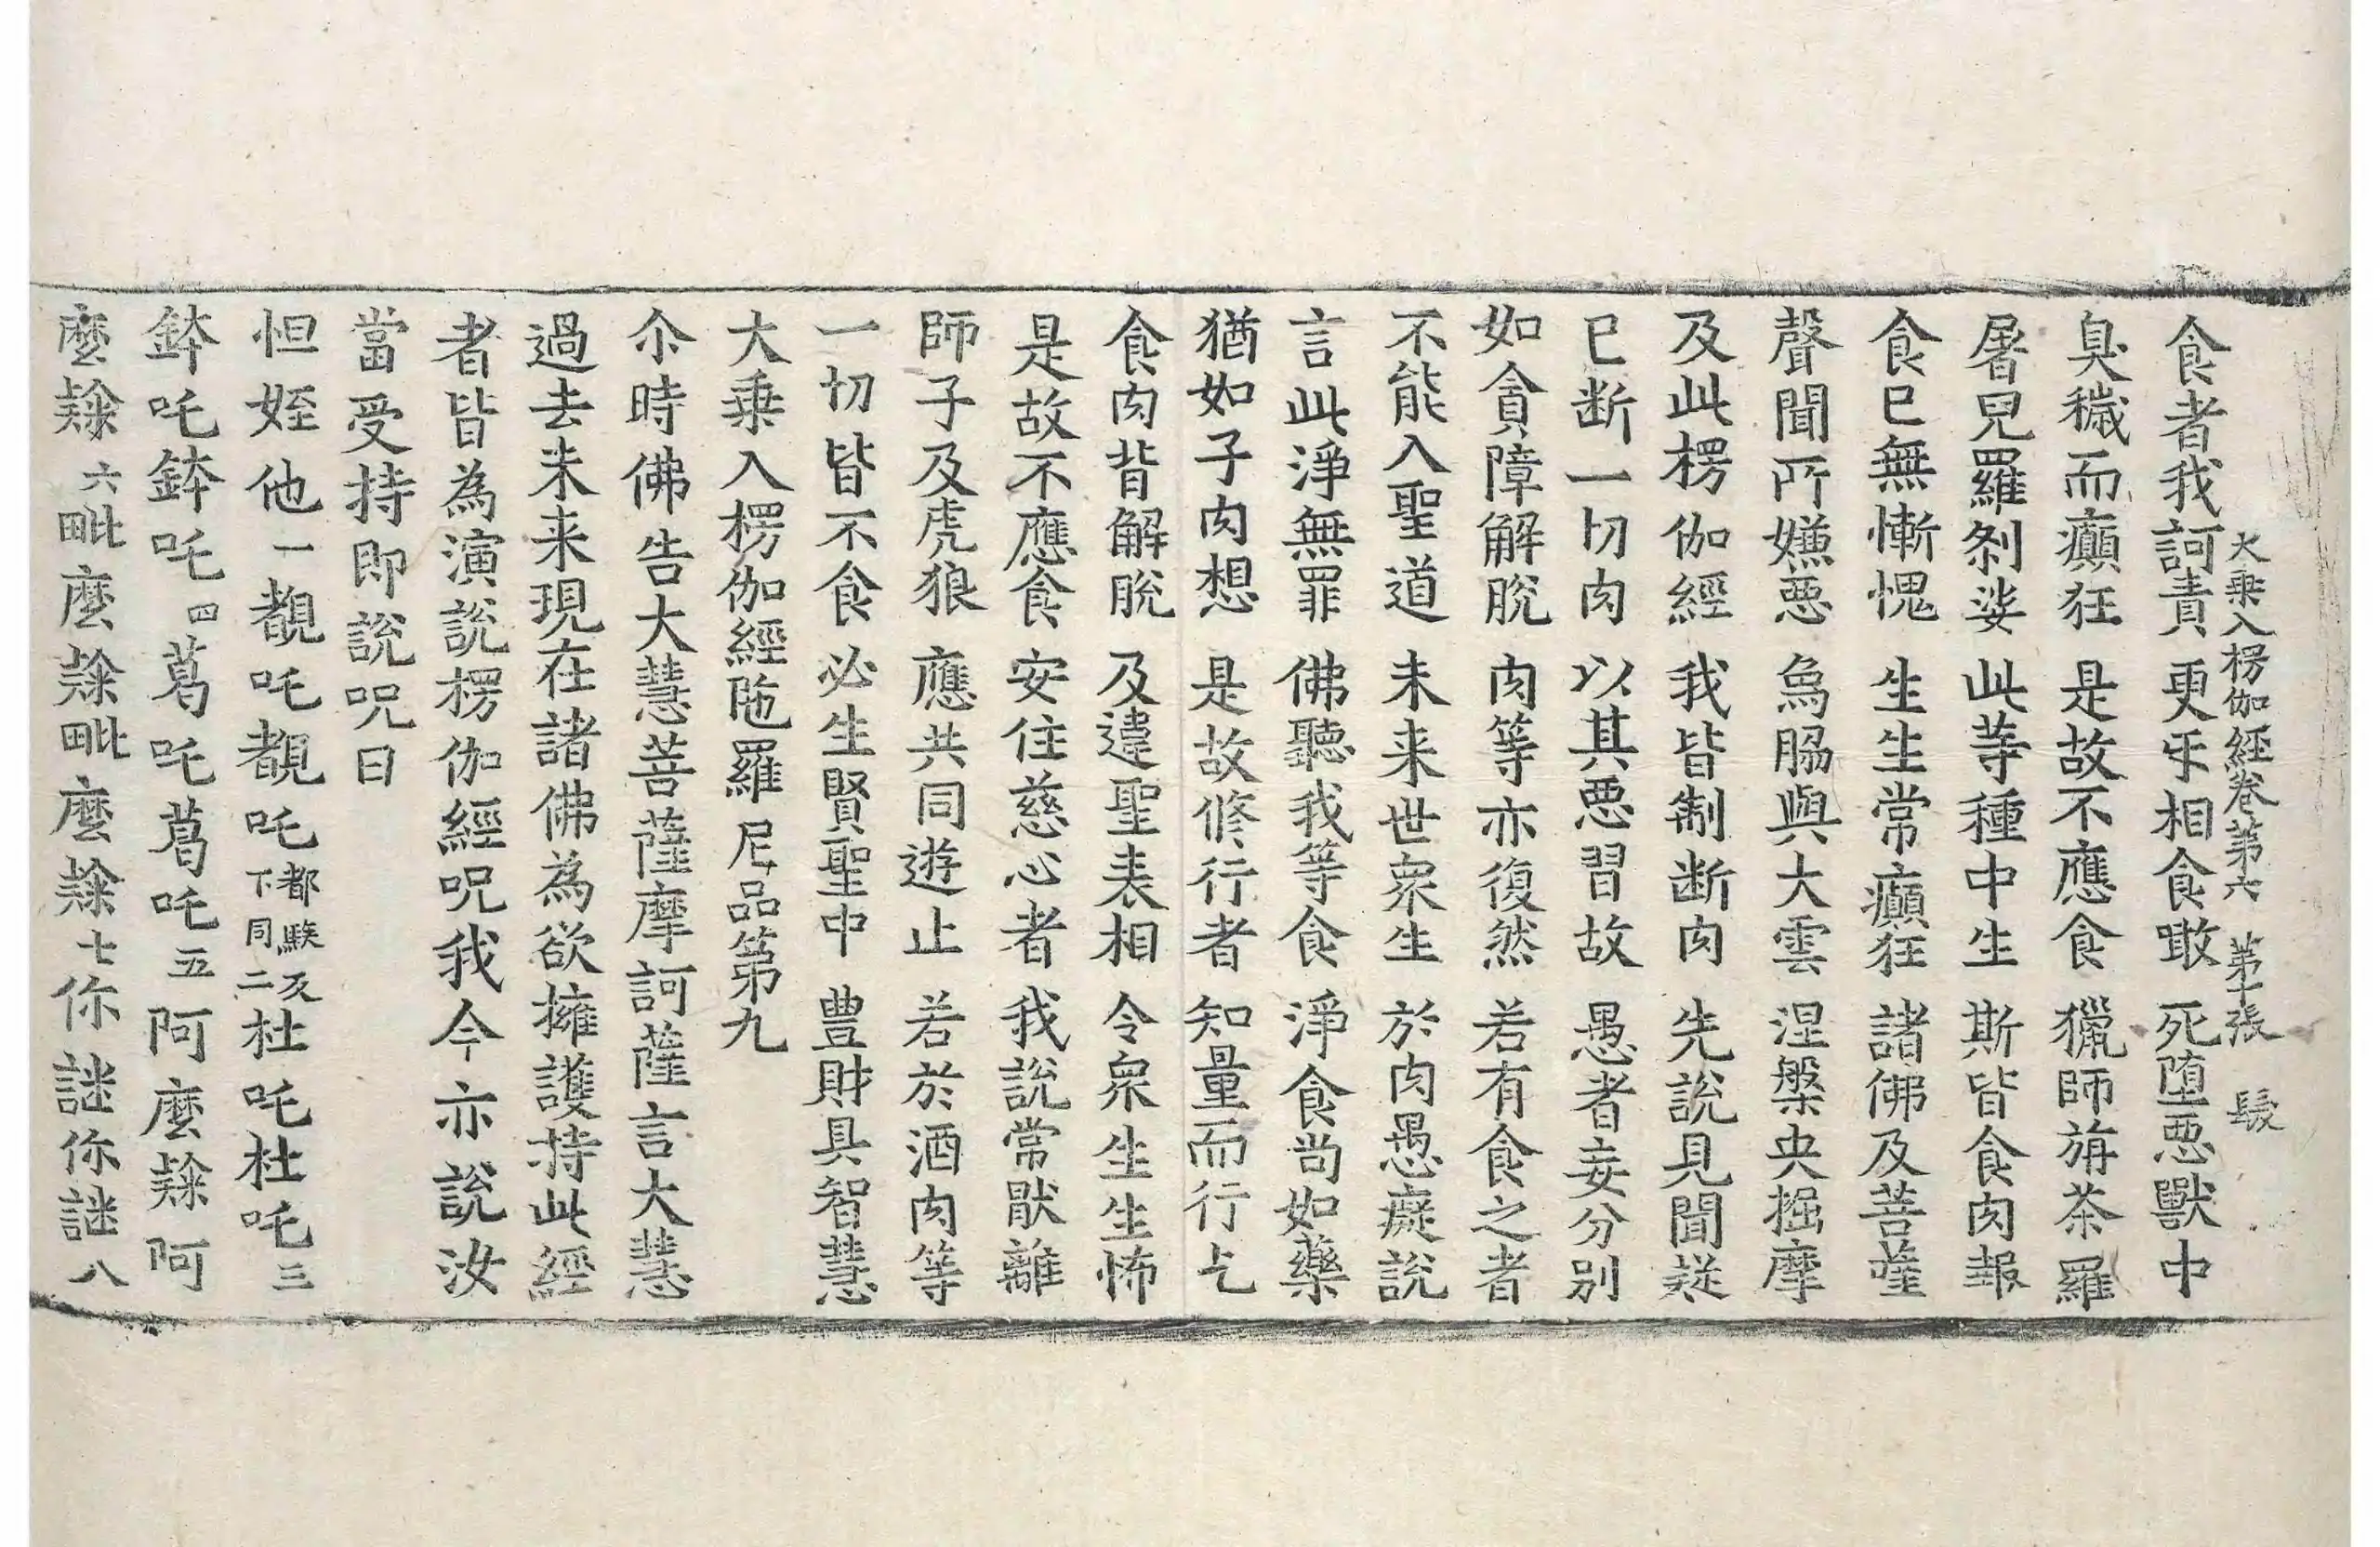 大乗入楞伽經卷第六 第十張 髮
食者我訶責 更㸦相食噉 死堕悪獸中
臭穢而癲狂 是故不應食 獵師旃茶羅
屠兒羅刹娑 此等種中生 斯皆食肉報
食已無慚愧 生生常癲狂 諸佛及菩薩
聲聞所嫌悪 烏脇與大雲 涅槃央掘摩
及此楞伽經 我皆制断肉 先說見聞疑
已断一切肉 以其悪習故 愚者妄分別
如貪障解脫 肉等亦復然 若有食之者
不能入聖道 未来世衆生 於肉愚癡說
言此淨無罪 佛聽我等食 淨食尚如藥
猶如子肉想 是故修行者 知量而行乞
食肉背解脫 及違聖表相 令衆生生怖
是故不應食 安住慈心者 我說常猒離
師子及虎狼 應共同遊止 若於酒肉等
一切皆不食 必生賢聖中 豊財具智慧
大乗入楞伽經陁羅尼品第九
尒時佛告大慧菩薩摩訶薩言大慧
過去未来現在諸佛為欲擁護持此經
者皆為演說楞伽經呪我今亦說汝
當受持即說呪曰
怛姪他一覩吒覩吒都騃反下同二杜吒杜吒三
鉢吒鉢吒四葛吒葛吒五阿麼隸阿
麼隸六毗麼隸毗麼隸七你謎你謎八